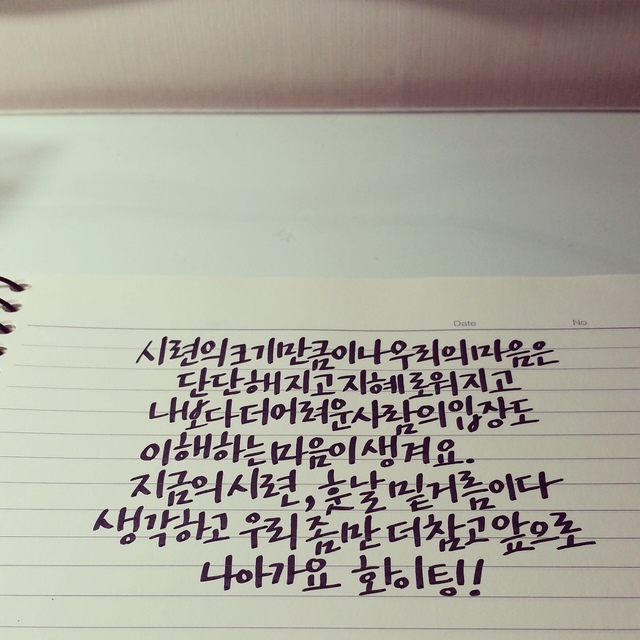 Date No
시련의크기만큼이나우리의마음은
단단해지고지혜로워지고
나보다더어려운사람의입장도
이해하는마음이생겨요.
지금의시련, 훗날밑거름이다
생각하고 우리좀만더참고앞으로
나아가요 화이팅!